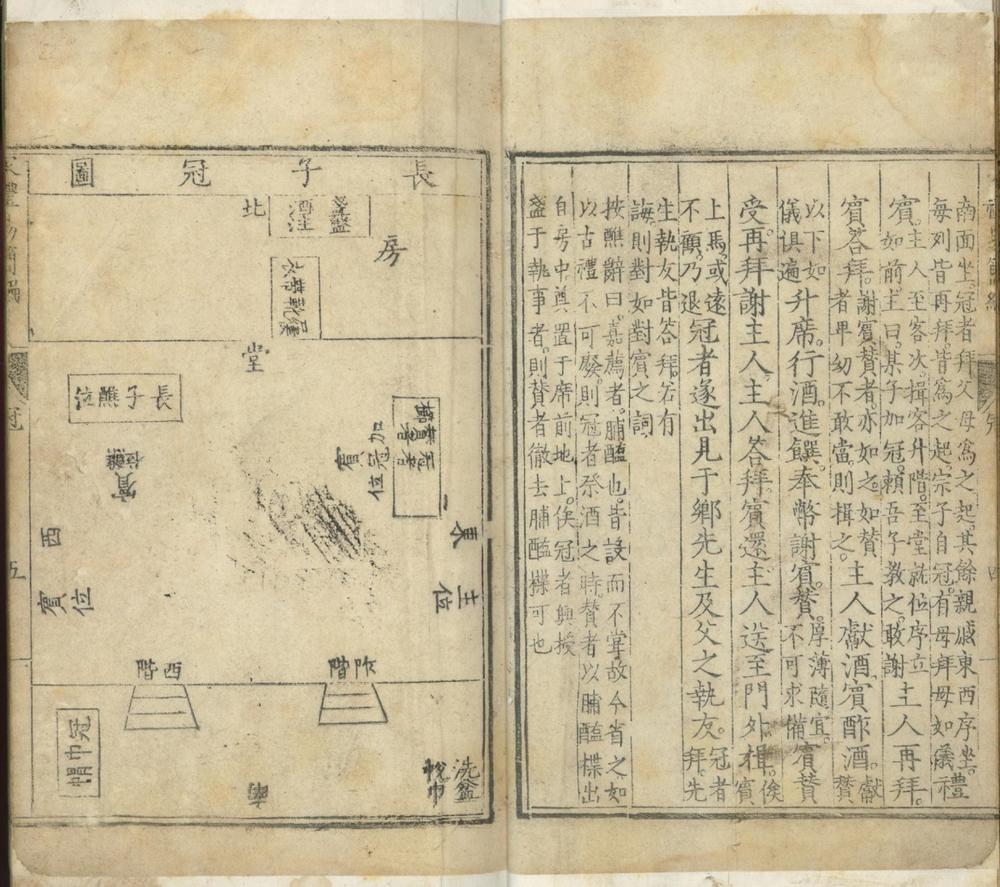 南面坐。冠者拜父母爲之起。其餘親戚東西序坐。
每列皆再拜。皆爲之起。宗子自冠。有母拜母如儀禮
賓。主人至客次。揖客升階。至堂就位序立。主人再拜。
賓如前主曰。某子加冠。賴吾子教之。敢謝
賓答拜。謝賓贊者。亦如之。如贊主人獻酒。賓酢酒。獻
者卑幼不敢當。則揖之。贊
以下如升席。行酒。進饌。奉幣謝賓贊。厚薄隨宜。賓贊
儀俱遍不可求備
受。再拜謝主人。主人答拜。賓還。主人送至門外。揖。俟
賓
上馬。或遠冠者遂出見于鄉先生及父之執友。冠者
不顧。乃退拜。先
生執友皆答拜。若有
誨。則對如對賓之詞
按醮辭曰。嘉薦者。脯醢也。皆設而不嘗。故今省之。如
以古禮不可廢。則冠者祭酒之時。贊者以脯醢楪出
自房中。奠置于席前地上。俟冠者興。授
盞于執事者。則贊者徹去脯醢楪可也
長子冠圖
北
房
堂
長子醮位
賓
加冠位
賓
東
西
主位
賓位
阼階
西階
冠巾帽
洗盆
帨巾
南
冠
五